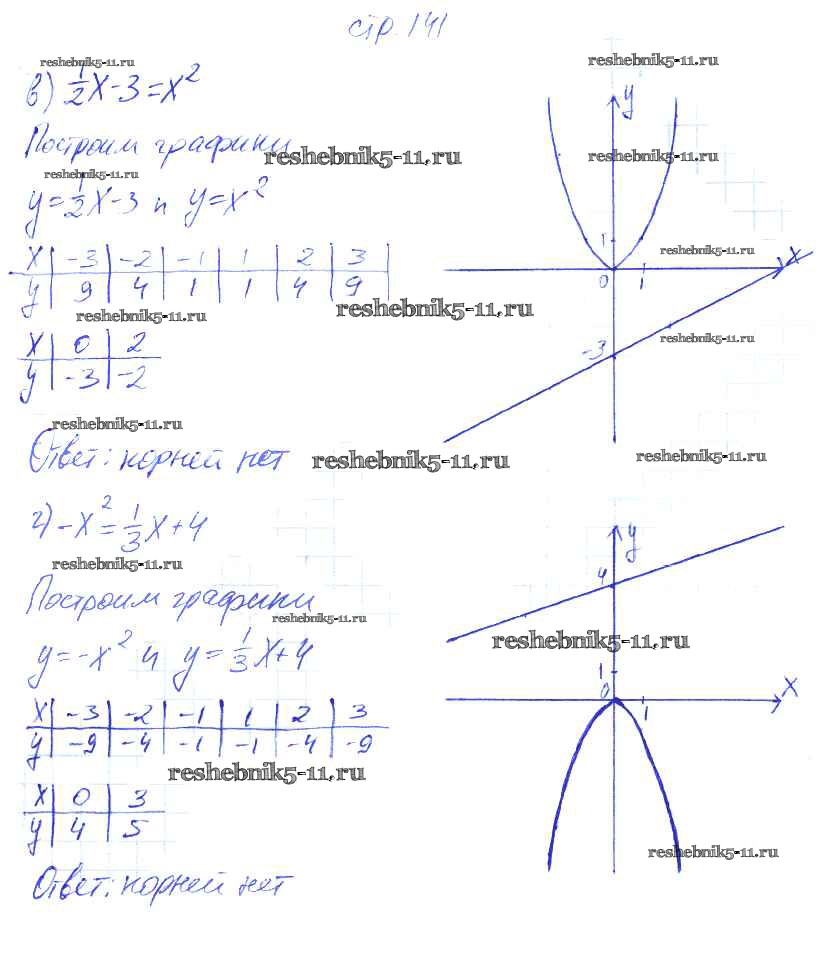 стр. 141
reshebnik5-11.ru
в) 1/2x-3=x²
Построим графики
reshebnik5-11.ru
reshebnik5-11.ru
y=1/2x-3 и y=x²
x | -3 | -2 | -1 | 1 | 2 | 3
y | 9 | 4 | 1 | 1 | 4 | 9
reshebnik5-11.ru
reshebnik5-11.ru
x | 0 | 2
y | -3 | -2
reshebnik5-11.ru
Ответ: корней нет
reshebnik5-11.ru
reshebnik5-11.ru
y
reshebnik5-11.ru
1
reshebnik5-11.ru
x
0
1
reshebnik5-11.ru
-3
reshebnik5-11.ru
г) -x²=1/3x+4
reshebnik5-11.ru
Построим графики
reshebnik5-11.ru
y=-x² и y=1/3x+4
x | -3 | -2 | -1 | 1 | 2 | 3
y | -9 | -4 | -1 | -1 | -4 | -9
reshebnik5-11.ru
x | 0 | 3
y | 4 | 5
Ответ: корней нет
y
4
reshebnik5-11.ru
1
0
x
1
reshebnik5-11.ru